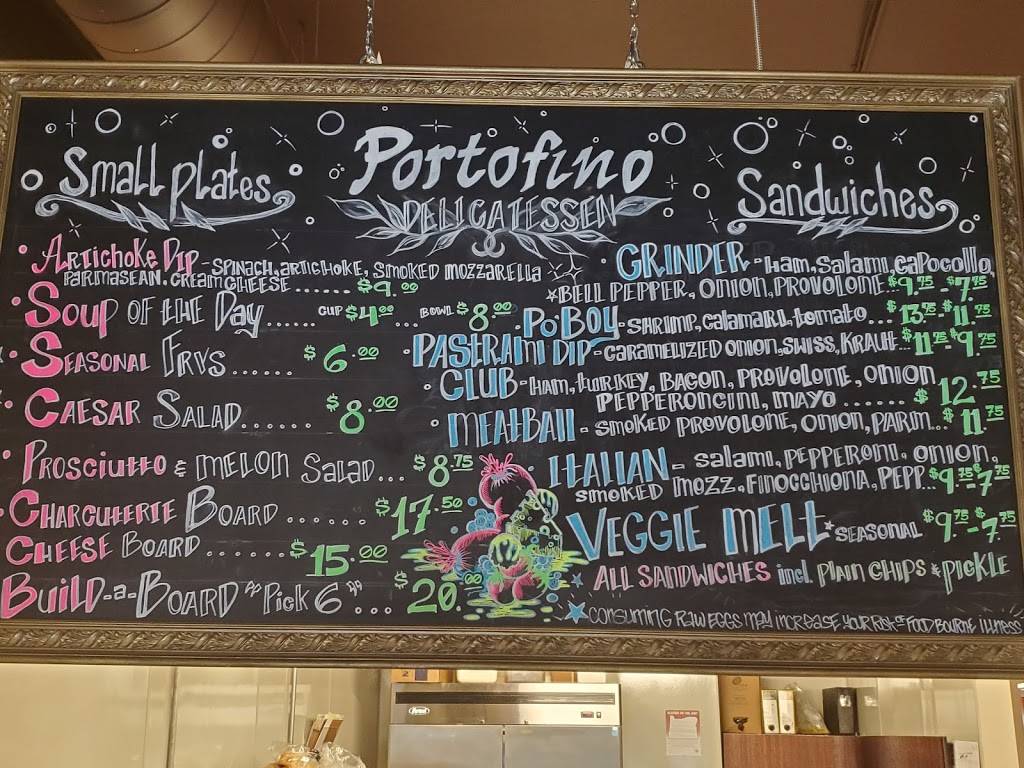 Portofino
DELICATESSEN
Small plates
ARtichoke Dip - SPINACH, ARTICHOKE, SMOKED MOZZARELLA
PARMASEAN, CREAM CHEESE ...... $9.00
Soup OF the Day...... CUP $4.00 ... BOWL $8.00
SEASONAL FRYS...... $6.00
CAESAR SALAD....... $8.00
PROSCIUTTO & MELON SALAD... $8.75
CHARCUTERIE BOARD ...... $17.50
CHEESE BOARD....... $15.00
BUILD-a-BOARD "Pick 6" ... $20.00
Sandwiches
GRINDER - HAM, SALAMI, CAPOCOLLO,
BELL PEPPER, ONION, PROVOLONE $9.75 $7.75
Po'BOY - SHRIMP, CALAMARI, tomato... $13.75 - $11.75
PASTRAMI DIP - CARAMELIZED ONION, SWISS, KRAUt... $11.75 - $9.75
CLUB - HAM, tURKEY, BACON, PROVOLONE, ONION
PEPPERONCINI, MAYO ...... $12.75
MEATBALL - SMOKED PROVOLONE, ONION, PARM... $11.75
ITALIAN - SALAMI, PEPPERONI, ONION,
SMOKED MOZZ, FINOCCHIONA, PEPP... $9.75 - $7.75
VEGGIE MELT * SEASONAL $9.75 - $7.75
ALL SANDWICHES incl. PLAIN CHIPS & PICKLE
CONSUMING RAW EGGS MAY INCREASE YOUR RISK OF FOOD BOURNE ILLNESS